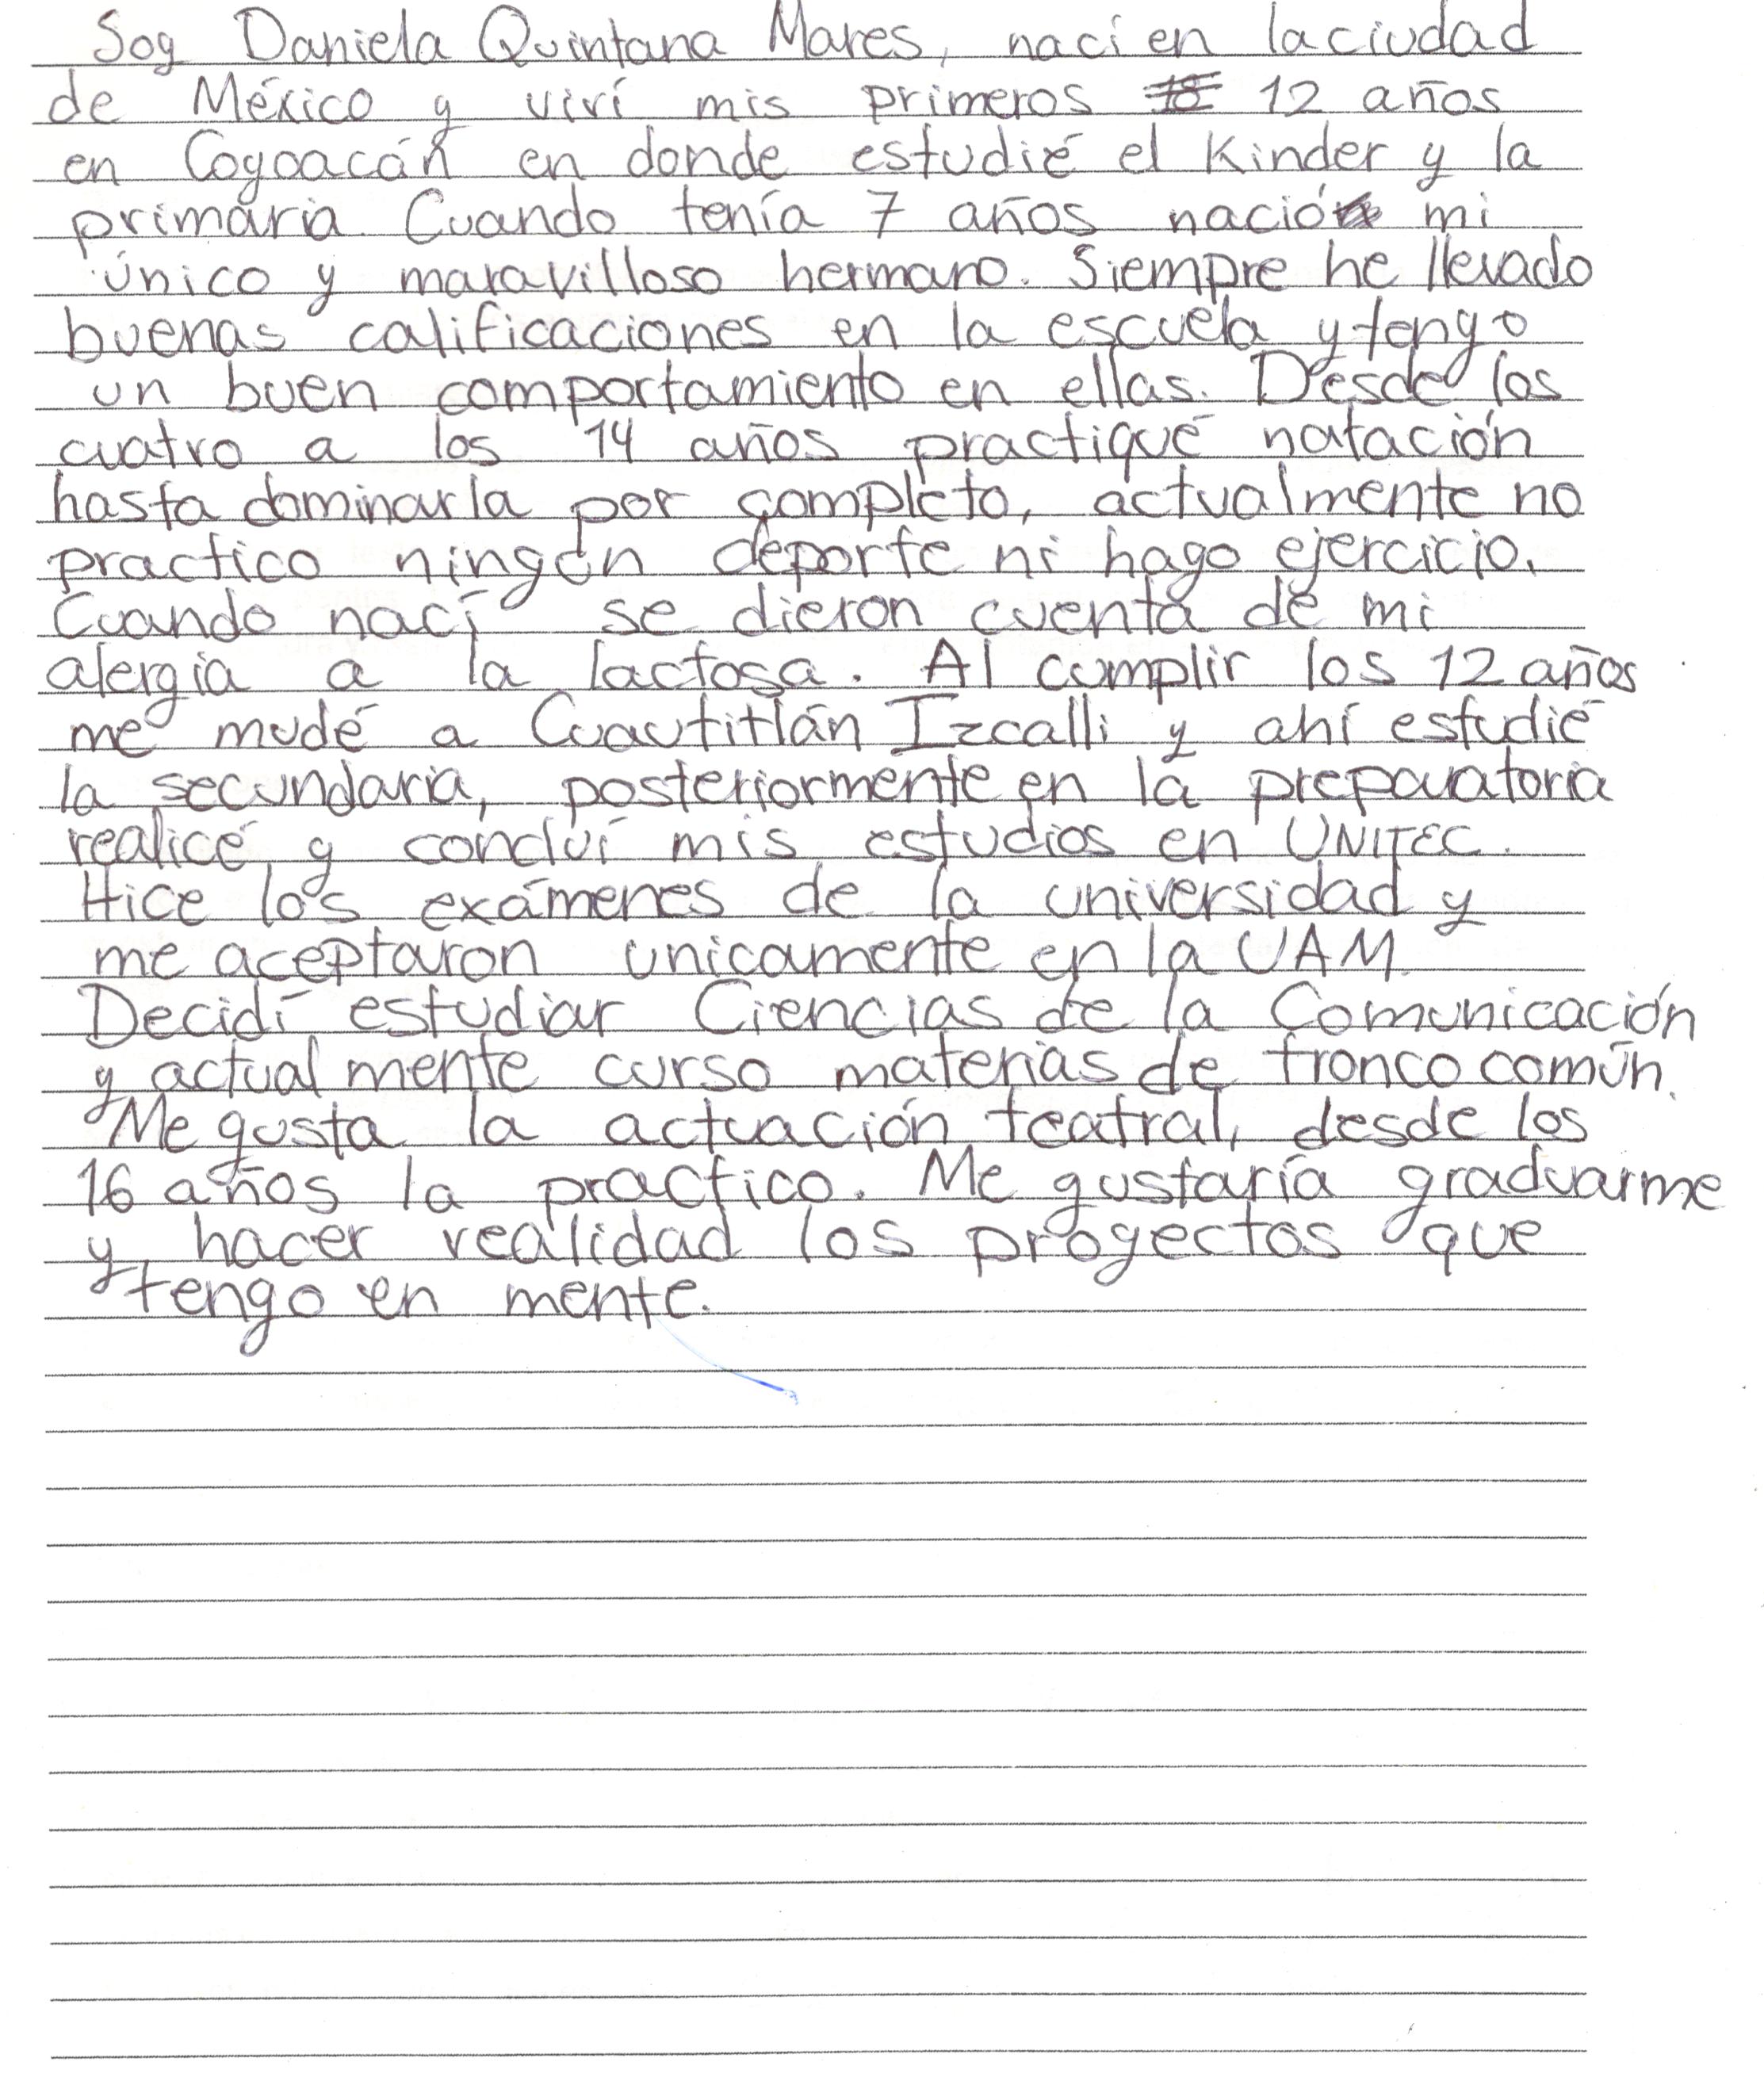 Soy Daniela Quintana Mares, nací en la ciudad
de México y viví mis primeros 12 años
en Coyoacán en donde estudié el Kinder y la
primaria. Cuando tenía 7 años nació mi
único y maravilloso hermano. Siempre he llevado
buenas calificaciones en la escuela y tengo
un buen comportamiento en ellas. Desde los
cuatro a los 14 años practiqué natación
hasta dominarla por completo, actualmente no
practico ningún deporte ni hago ejercicio.
Cuando nací se dieron cuenta de mi
alergia a la lactosa. Al cumplir los 12 años
me mudé a Cuautitlán Izcalli y ahí estudié
la secundaria, posteriormente en la preparatoria
realicé y concluí mis estudios en UNITEC.
Hice los exámenes de la universidad y
me aceptaron unicamente en la UAM.
Decidí estudiar Ciencias de la Comunicación
y actualmente curso materias de tronco común.
Me gusta la actuación teatral, desde los
16 años la practico. Me gustaría graduarme
y hacer realidad los proyectos que
tengo en mente.